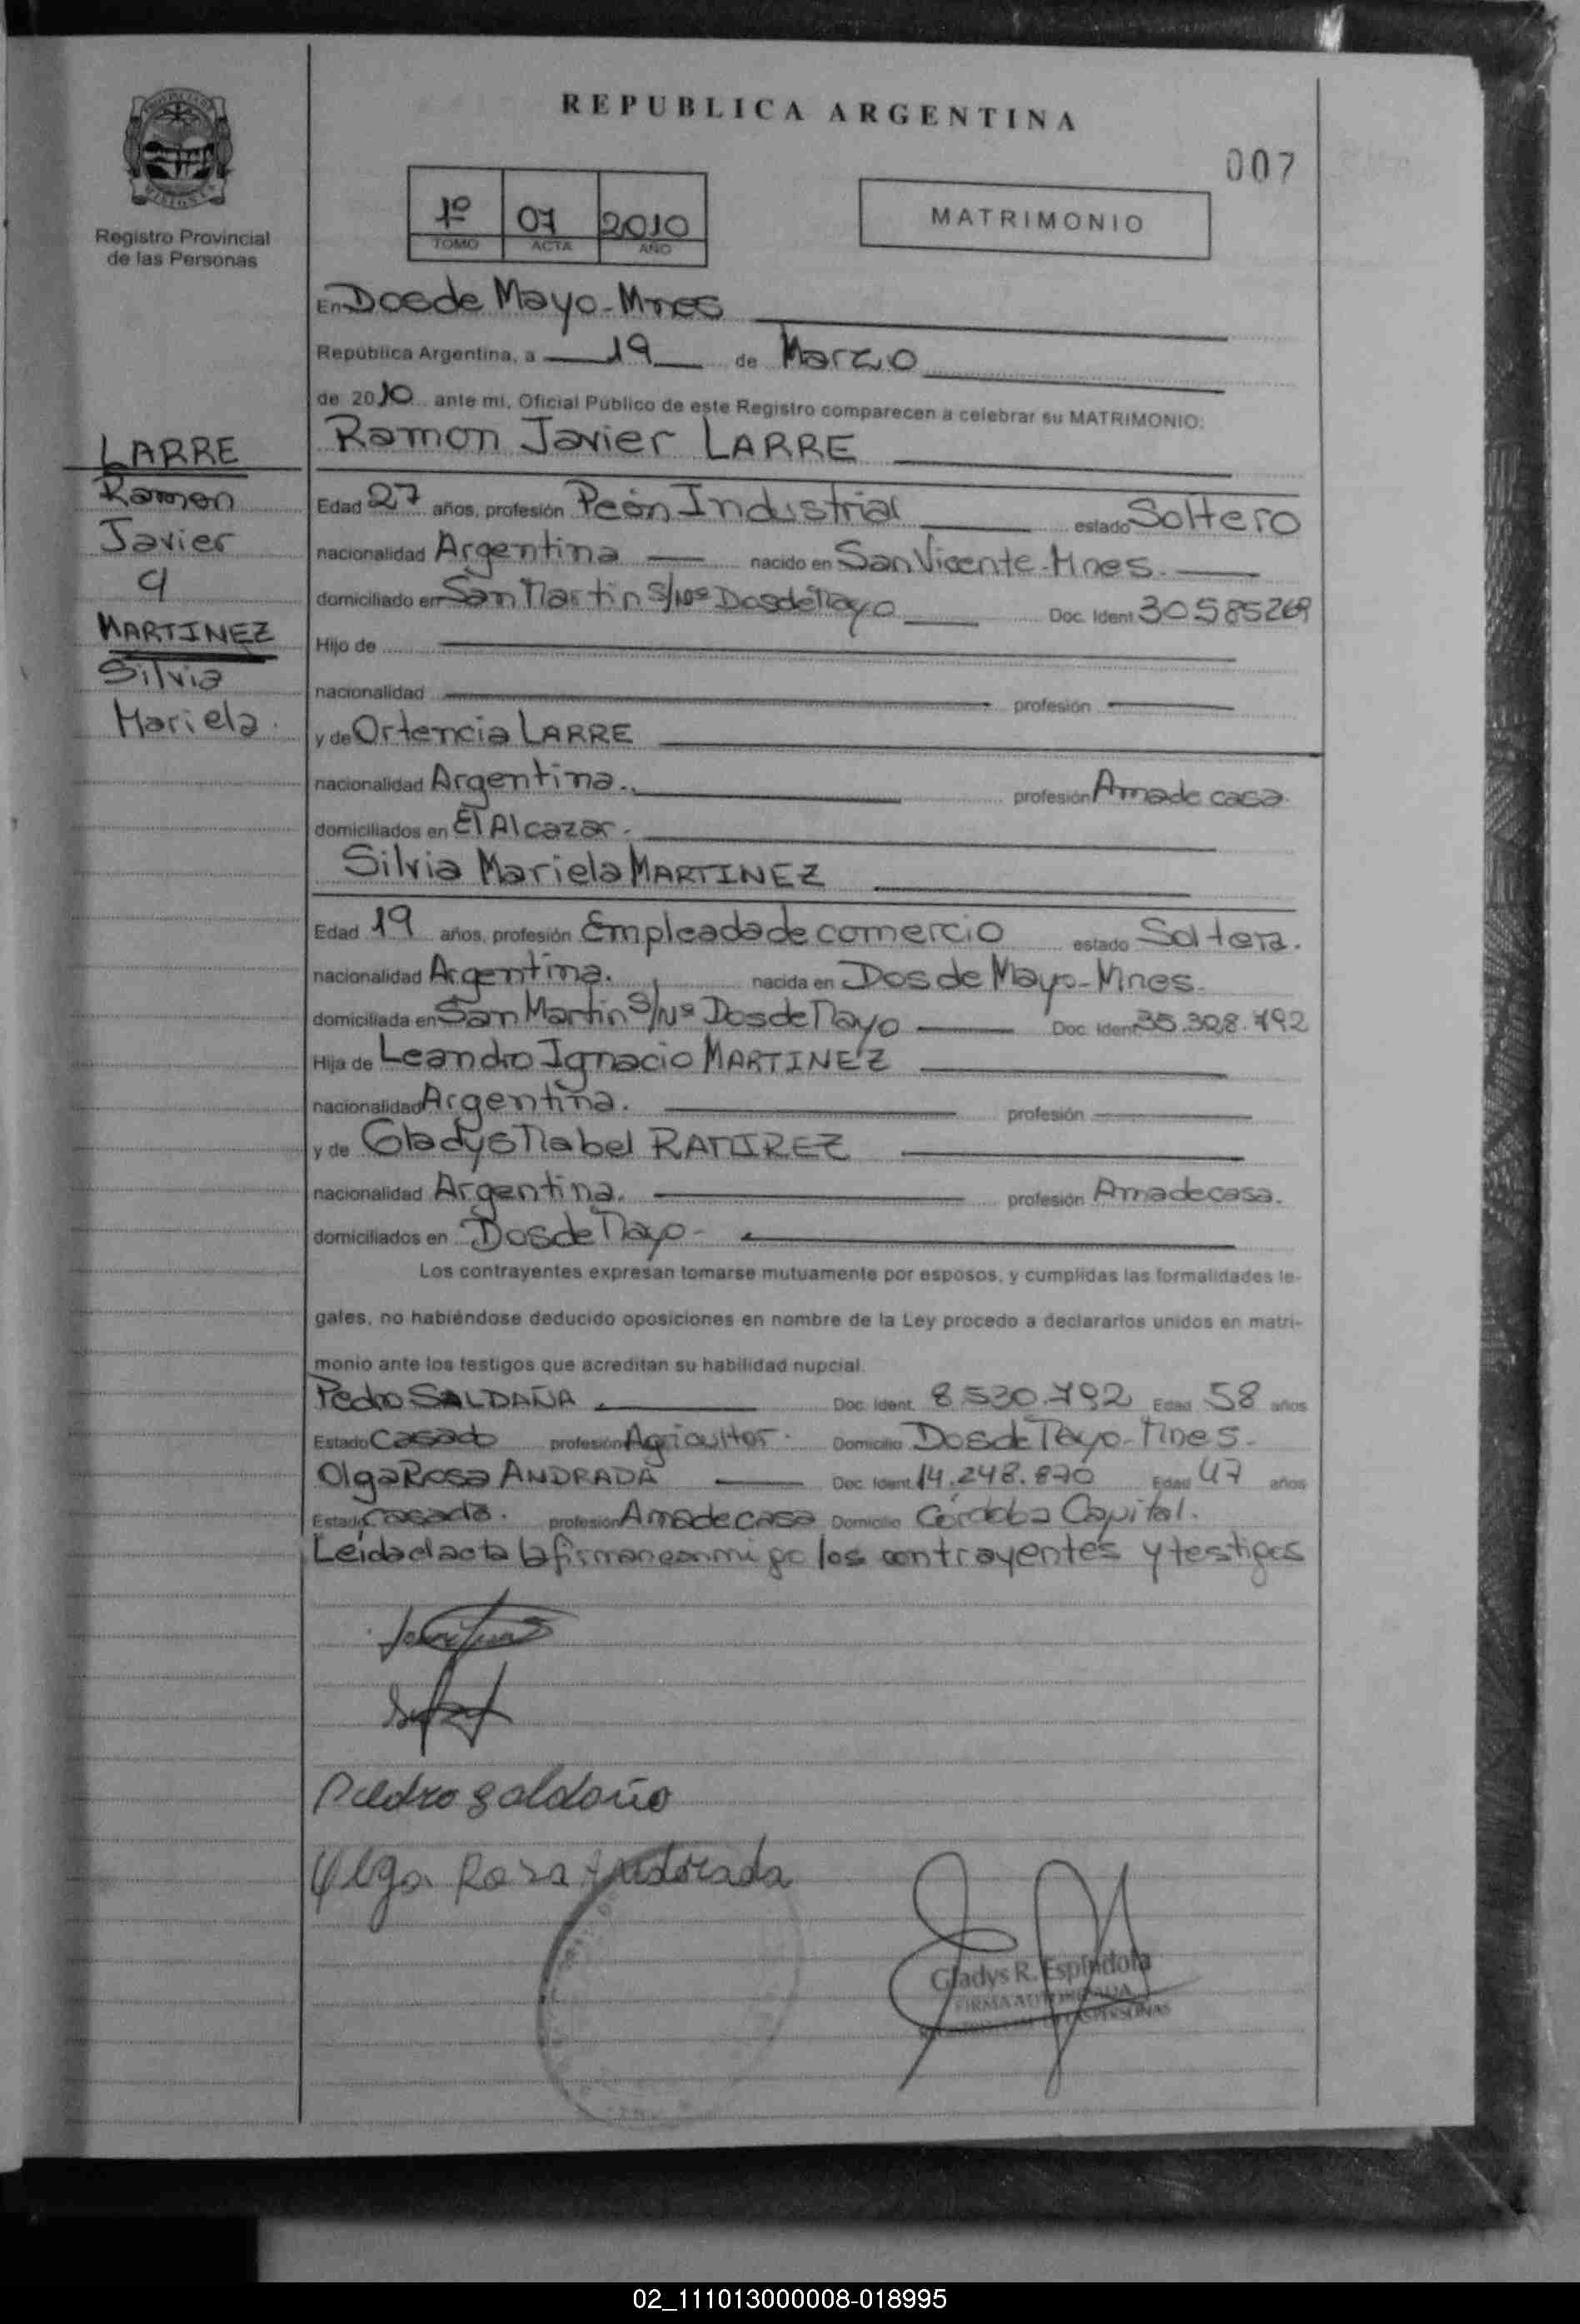 REPUBLICA ARGENTINA
007
Registro Provincial
de las Personas
1º 07 2010
TOMO ACTA AÑO
MATRIMONIO
En Dos de Mayo - Mnes
República Argentina, a 19 de Marzo
de 2010 ante mi, Oficial Público de este Registro comparecen a celebrar su MATRIMONIO:
LARRE
Ramon
Javier
y
MARTINEZ
Silvia
Mariela.
Ramon Javier LARRE
Edad 27 años, profesión Peón Industrial estado Soltero
nacionalidad Argentina nacido en San Vicente - Mnes.
domiciliado en San Martin S/Nº Dos de Mayo Doc. Ident. 30585269
Hijo de
nacionalidad profesión
y de Ortencia LARRE
nacionalidad Argentina. profesión Ama de casa
domiciliados en El Alcazar.
Silvia Mariela MARTINEZ
Edad 19 años, profesión Empleada de comercio estado Soltera.
nacionalidad Argentina. nacida en Dos de Mayo - Mnes.
domiciliada en San Martin S/Nº Dos de Mayo Doc. Ident. 35.328.492
Hija de Leandro Ignacio MARTINEZ
nacionalidad Argentina. profesión
y de Gladys Mabel RAMIREZ
nacionalidad Argentina. profesión Ama de casa.
domiciliados en Dos de Mayo -
Los contrayentes expresan tomarse mutuamente por esposos, y cumplidas las formalidades le-
gales, no habiéndose deducido oposiciones en nombre de la Ley procedo a declararlos unidos en matri-
monio ante los testigos que acreditan su habilidad nupcial.
Pedro SALDAÑA Doc. Ident. 8.530.792 Edad 58 años
Estado Casado profesión Agricultor. Domicilio Dos de Mayo - Mnes.
Olga Rosa ANDRADA Doc. Ident. 14.248.870 Edad 47 años
Estado Casada. profesión Ama de casa Domicilio Córdoba Capital.
Leida el acta la firman conmigo los contrayentes y testigos
Pedro Saldaño
Olga Rosa Andrada
Gladys R. Espindola
FIRMA AUTORIZADA
02_111013000008-018995